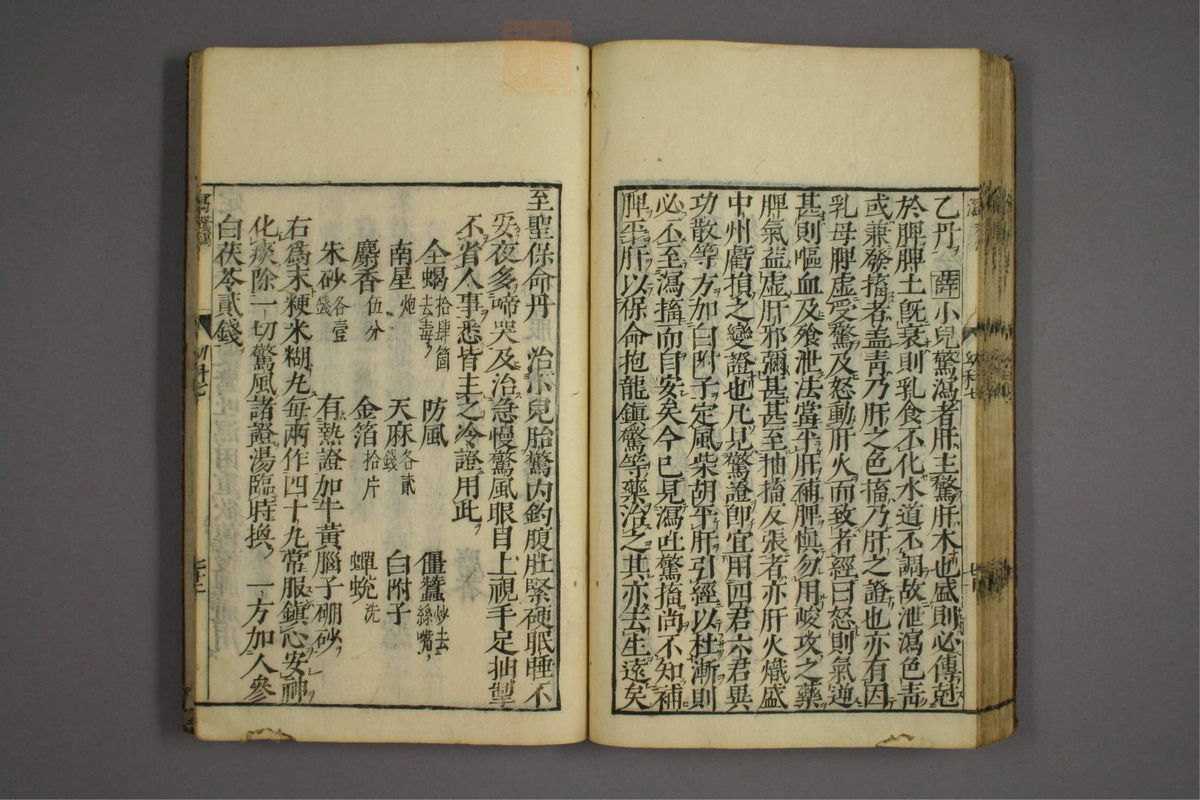 乙丹 薛小兒驚瀉者肝主驚肝木也盛則必傳剋
於脾脾土既衰則乳食不化水道不調故泄瀉色青
或兼發搐者盖青乃肝之色搐乃肝之證也亦有因
乳母脾虚受驚及怒動肝火而致者經曰怒則氣逆
甚則嘔血及飱泄法當平肝補脾慎勿用峻攻之藥
脾氣益虚肝邪彌甚甚至抽搐反張者亦肝火熾盛
中州虧損之變證也凡見驚證即宜用四君六君異
功散等方加白附子定風柴胡平肝引經以杜漸則
必不至瀉搐而自安矣今已見瀉吐驚搐尚不知補
脾平肝以保命抱龍鎮驚等藥治之其亦去生遠矣
至聖保命丹 治小兒胎驚内釣腹肚緊硬眠睡不
安夜多啼哭及治急慢驚風眼目上視手足抽掣
不省人事悉皆主之冷證用此
全蝎拾肆箇去毒 防風 僵蠶炒去絲嘴
南星炮 天麻各貳錢 白附子
麝香伍分 金箔拾片 蟬蛻洗
朱砂各壹錢 有熱證加牛黄腦子硼砂
右爲末粳米糊丸每兩作四十九常服鎮心安神
化痰除一切驚風諸證湯臨時換 一方加人參
白茯苓貳錢